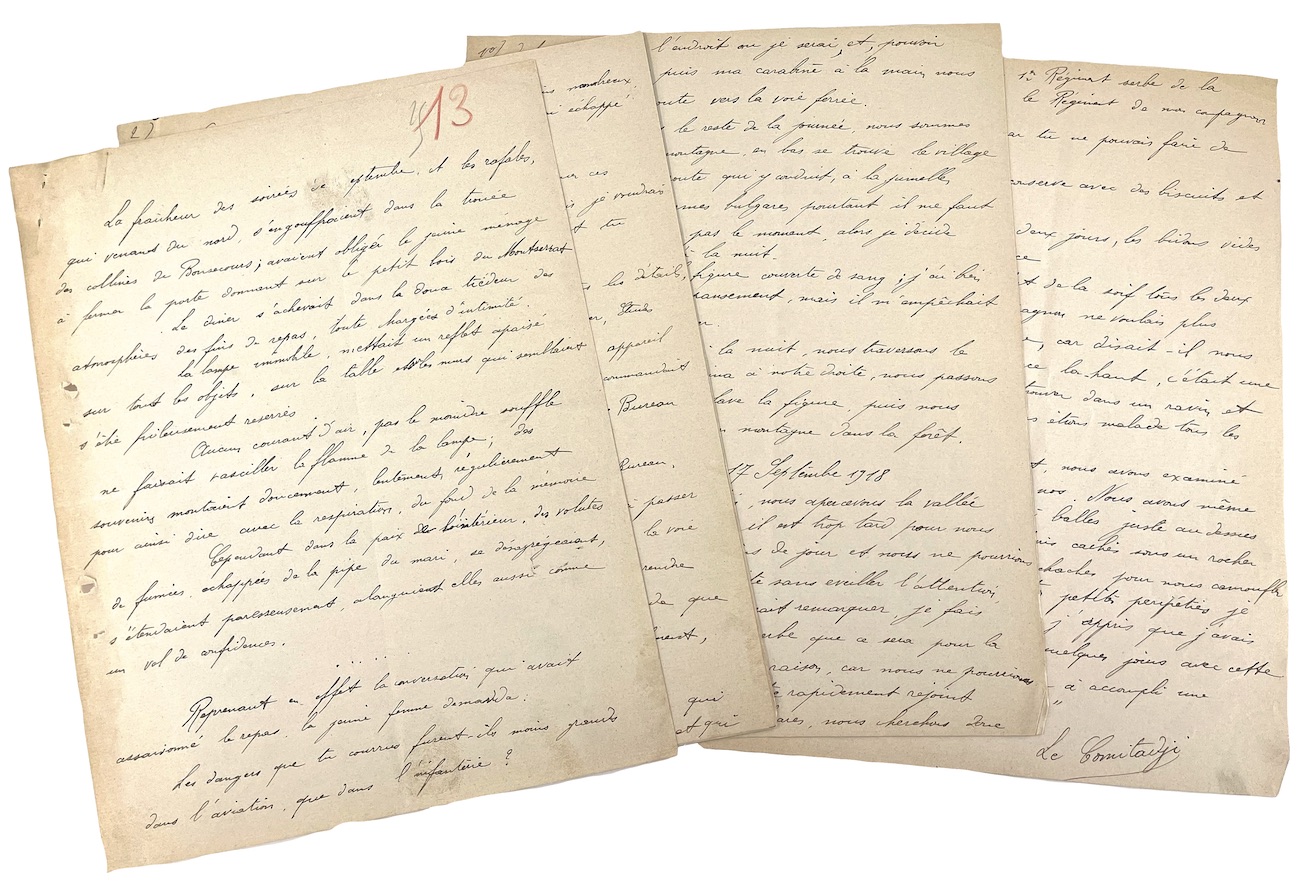 13
La fraîcheur des soirées de septembre, et les rafales,
qui venant du nord, s'engouffraient dans la trouée
des collines de Bonsecours; avaient obligé le jeune ménage
à fermer la porte donnant sur le petit bois du Montserrat
Le diner s'achevait dans la douce tiédeur des
atmosphères des fins de repas, toute chargées d'intimité.
la lampe immobile, mettait un reflet apaisé
sur tout les objets, sur la table et les murs qui semblaient
s'être frileusement reserrés
Aucun courant d'air, pas le moindre souffle
ne faisait vasciller la flamme de la lampe; des
souvenirs montaient doucement, lentement, régulièrement
pour ainsi dire avec la respiration, du fond de la mémoire
Cependant dans la paix de l'intérieur, des volutes
de fumées, echappées de la pipe du mari, se désagrégeaient,
s'étendaient paresseusement, alanguient elles aussi comme
un vol de confidences.
......
Reprenant en effet la conversation qui avait
assaisonné le repas la jeune femme demanda:
Les dangers que tu courrus furent-ils moins grands
dans l'aviation, que dans l'infanterie ?
2)
nombreux
echappé.
ces
je voudrais
tu
les détails
appareil
commandant
Bureau
Bureau.
à passer
la voie
que
qui
et qui
10)
l'endroit ou je serai, et, pouvoir
puis ma carabine à la main nous
route vers la voie ferrée.
le reste de la journée, nous sommes
montagne, en bas se trouve le village
route qui y conduit, à la jumelles
bulgares pourtant il ne faut
pas le moment, alors je décide
à la nuit.
figure couverte de sang; j'ai bien
pansement, mais il m'empêchait
la nuit, nous traversons le
à notre droite, nous passons
lave la figure, puis nous
montagne dans la forêt.
17 Septembre 1918
nous apercevons la vallée
il est trop tard pour nous
de jour et nous ne pourrions
sans eveiller l'attention
remarquer, je fais
que ce sera pour la
raison, car nous ne pourrions
rapidement rejoint
nous cherchons donc
1er Régiment serbe de la
le Régiment de mon compagnon
tu ne pouvais faire de
conserve avec des biscuits et
deux jours, les bidons vides
de la soif tous les deux
ne voulais plus
car disait-il nous
la haut, c'était une
trouver dans un ravin et
étions malade tous les
nous avons examiné
nos. Nous avons même
balles juste au dessus
cachés sous un rocher
pour nous camoufler
petits peripéties je
j'appris que j'avais
quelques jours avec cette
à accompli une
Le Comitadji